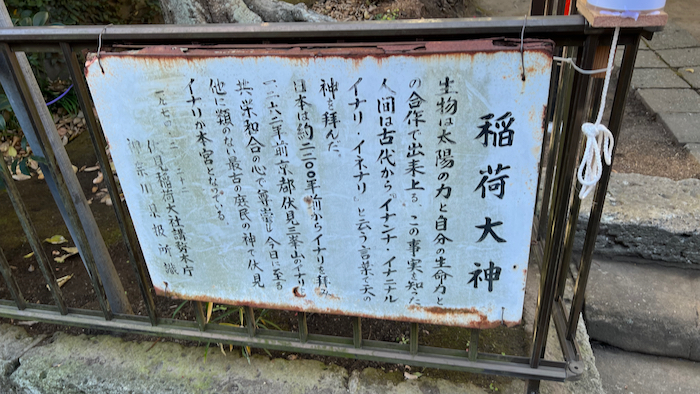 稲荷大神
生物は太陽の力と自分の生命力と
の合作で出来上る この事実を知った
人間は古代からイナンナ・イナニナル
イナリ・イネナリ と云う言葉で天の
神を拝んだ。
日本は約二二〇〇年前からイナリを拝み
一二六二年前京都伏見三峯山のイナリを
共栄和合の心で尊崇し今日に至る
他に類のない最古の庶民の神で伏見
イナリが本宮となっている
一九七〇
伏見稲荷大社講務本庁
神奈川県扱所